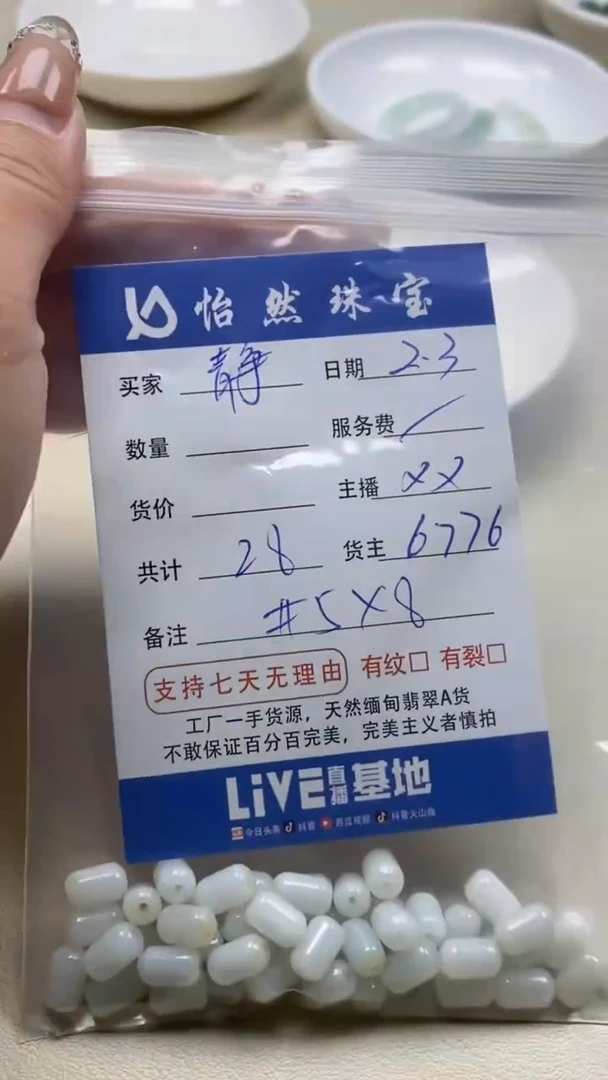 怡然珠宝
买家 静 日期 2.3
数量 服务费 /
货价 主播 XX
共计 28 货主 6776
备注 #5X8
支持七天无理由 有纹□ 有裂□
工厂一手货源，天然缅甸翡翠A货
不敢保证百分百完美，完美主义者慎拍
LiVE直播基地
今日头条 抖音 西瓜视频 抖音火山版